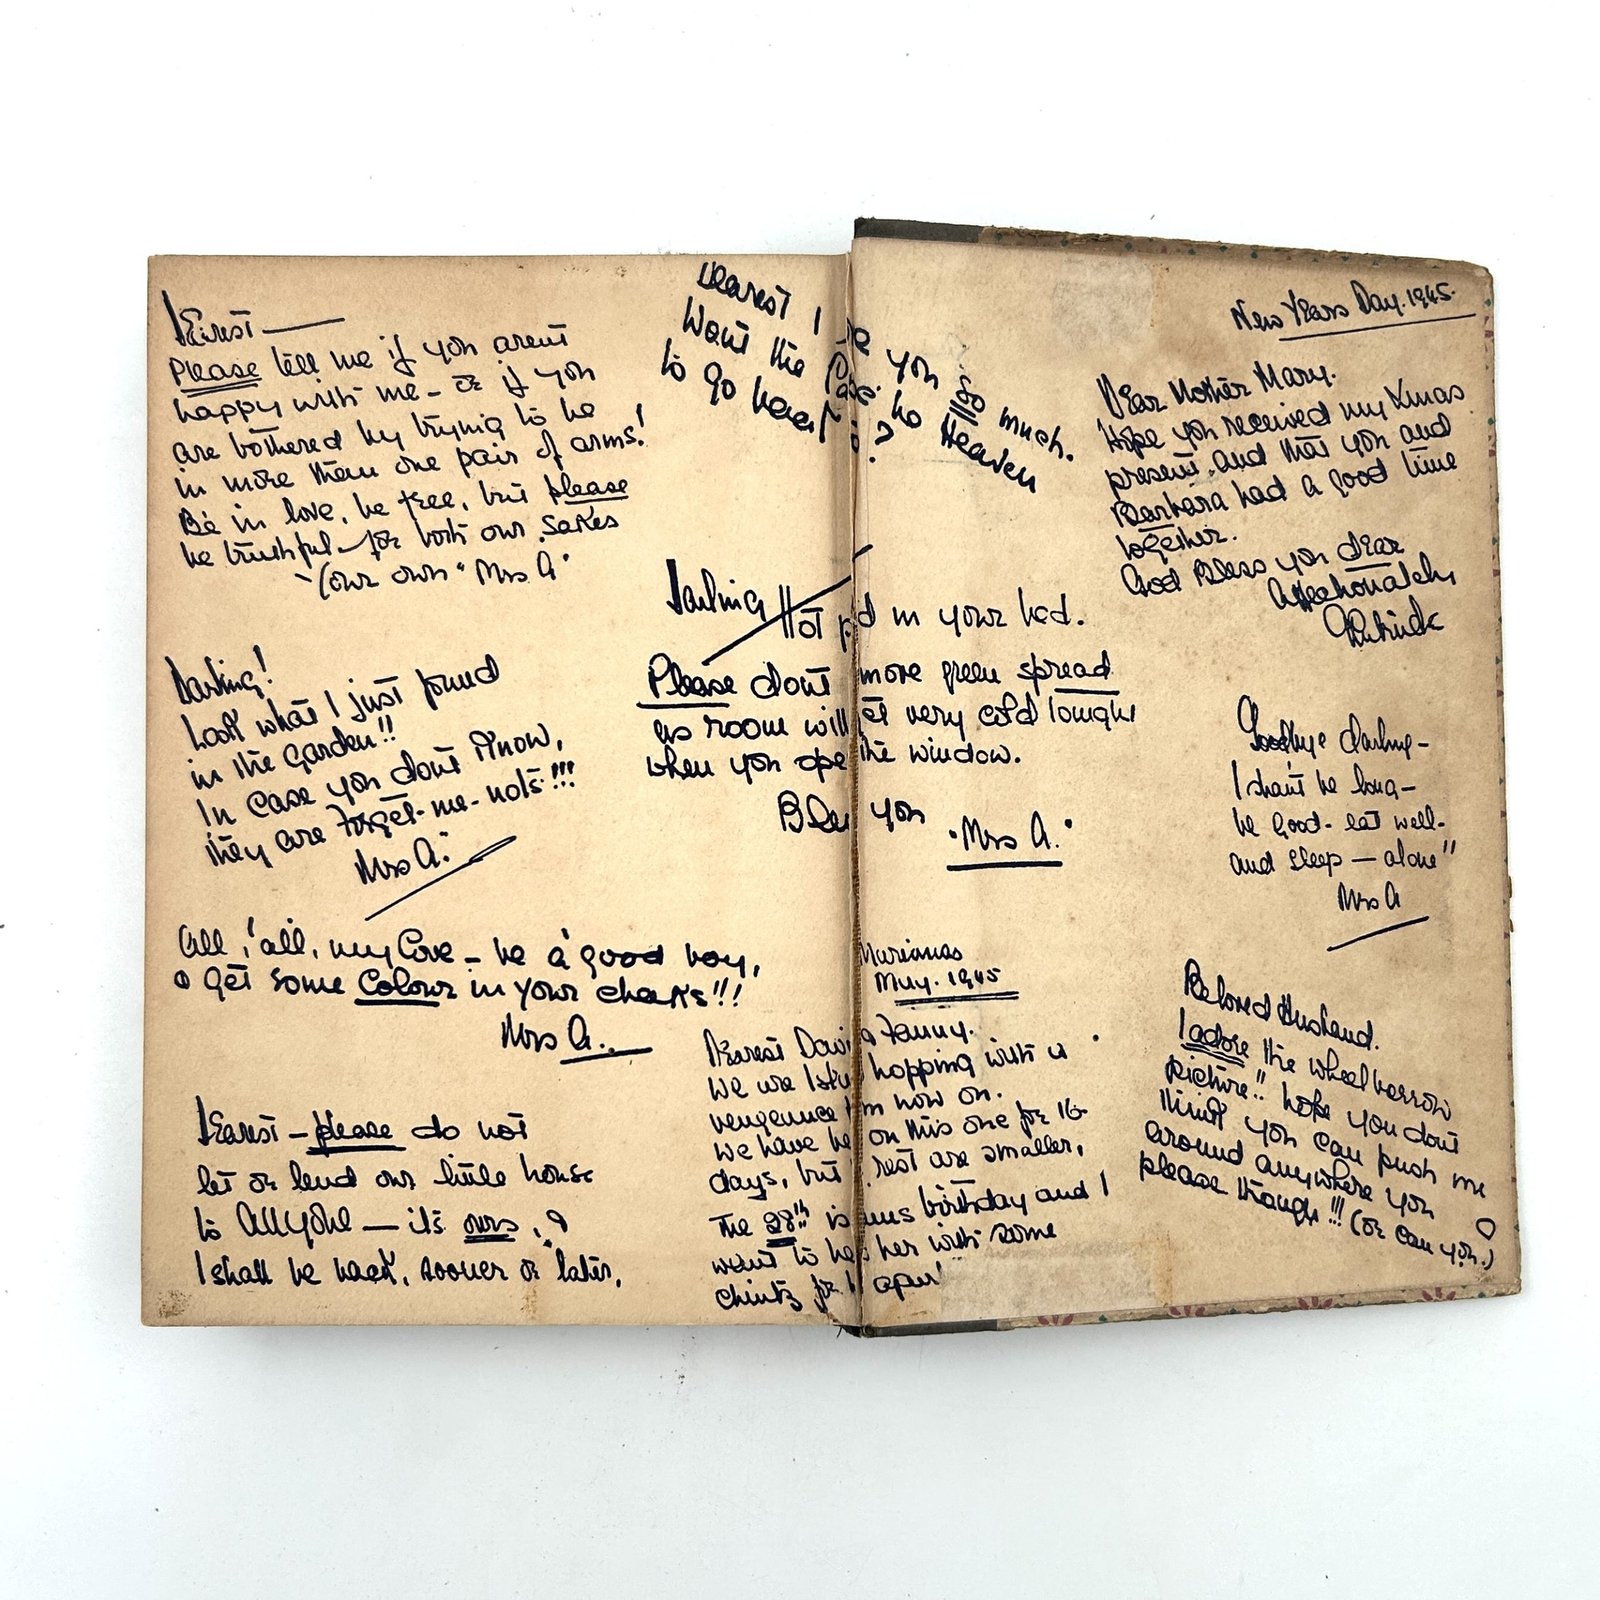 Dearest —
Please tell me if you arent
happy with me - or if you
are bothered by trying to be
in more than one pair of arms!
Be in love, be free, but please
be truthful - for both our sakes
Your own "Mrs A"
Darling!
Look what I just found
in the garden!!
In case you dont know,
they are Forget-me-nots!!!
Mrs A.
All, all, my love - be a good boy,
& get some Colour in your cheeks!!!
Mrs A.
Dearest - please do not
let or lend our little house
to anyone - its ours, &
I shall be back, sooner or later.
Dearest I you so much.
Want the no Heaven
to go
Darling
Hot in your bed.
Please dont more green spread
as room will get very cold tonight
when you open the window.
Bless you
"Mrs A."
Marianas
May. 1945
Dearest Fanny.
We are hopping with a
vengeance from now on.
We have on this one for 16
days, but rest are smaller,
The 28th is birthday and I
want to her with some
chintz for
New Years Day. 1945.
Dear Mother Mary.
Hope you received my Xmas
present, and that you and
Barbara had a good time
together.
God Bless you dear
Affectionately
Patrick
Goodbye darling -
I shan't be long -
be good - eat well -
and sleep - alone"
Mrs A
Beloved Husband.
I adore the wheelbarrow
picture!! hope you dont
think you can push me
around anywhere you
please though!!! (or can you.)